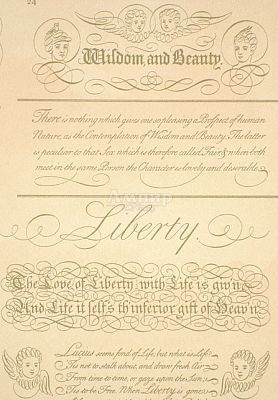 24
Wisdom, and Beauty.
There is nothing which gives one so pleasing a Prospect of human
Nature, as the Contemplation of Wisdom and Beauty: The latter
is peculiar to that Sex which is therefore call'd Fair; & when both
meet in the same Person the Character is lovely and desirable.
Ампир
Liberty.
The Love of Liberty with Life is giv'n
And Life it self's th' inferior gift of Heav'n
Lucius seems fond of Life; but what is Life?
'Tis not to stalk about, and draw fresh Air
From time to time, or gaze upon the Sun;
'Tis to be Free. When Liberty is gone